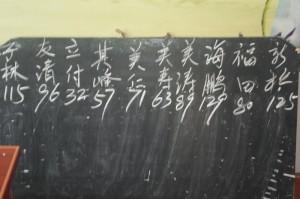 林 115
友清 96
立付 32
其峰 57
美仁 71
英寿 63
美涛 89
海鹏 129
福田 80
新 125